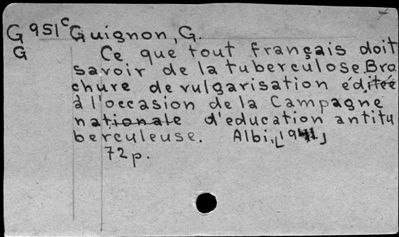 G951c Guignon, G.
G Ce que tout français doit
savoir de la tuberculose. Bro
chure de vulgarisation éditée
à l'occasion de la Campagne
nationale d'education antitu
berculeuse. Albi, [1941]
72p.